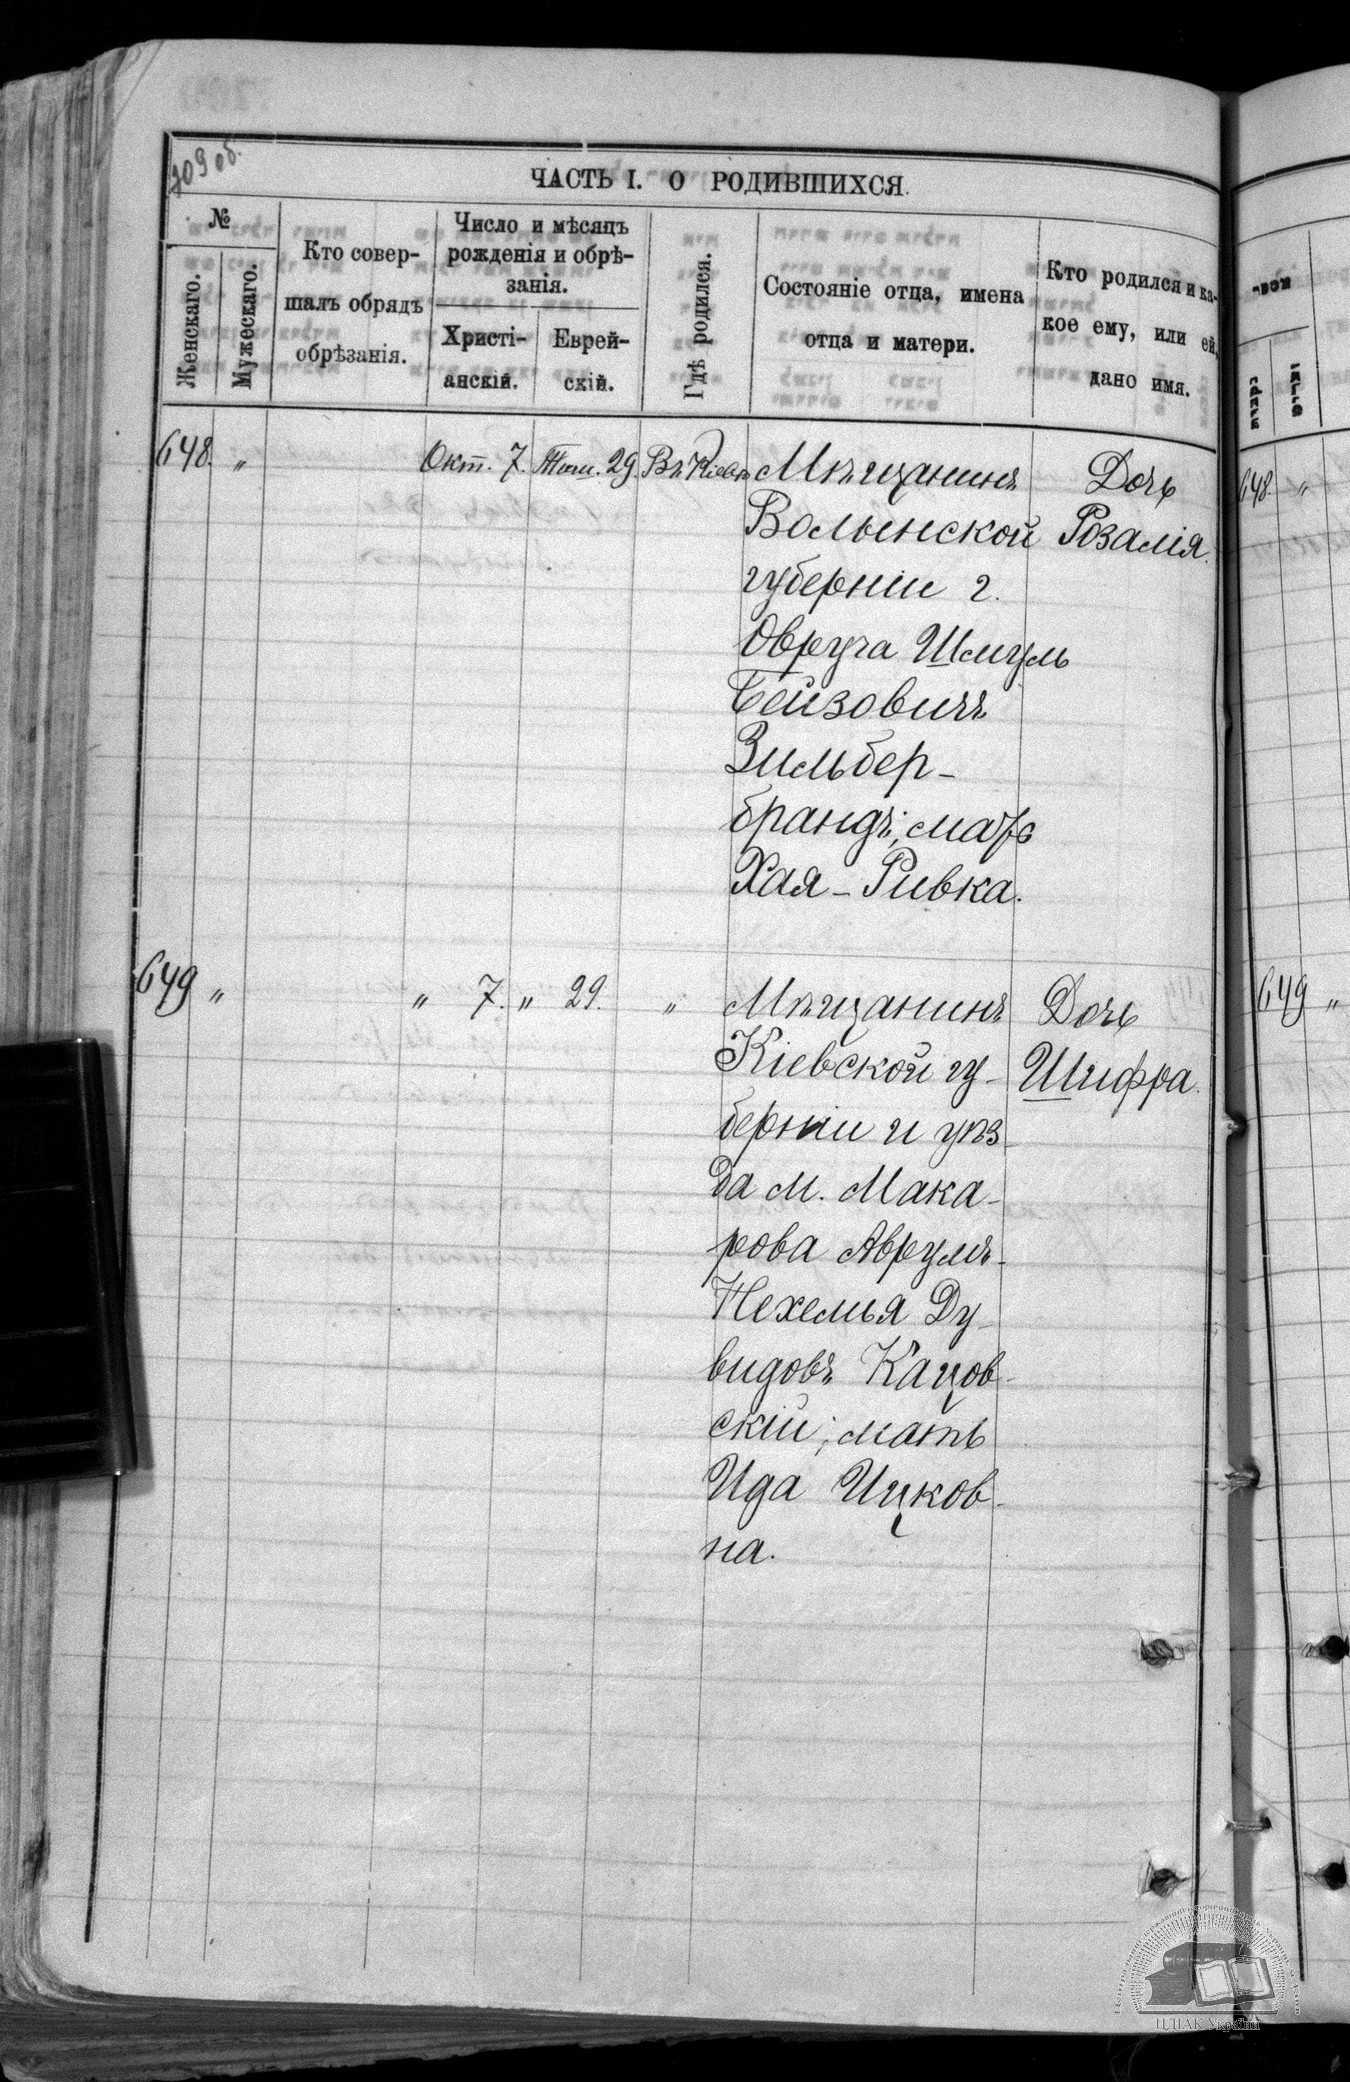 709 об.
ЧАСТЬ I. О РОДИВШИХСЯ.
№
Женскаго.
Мужескаго.
Кто совер-
шалъ обрядъ
обрѣзанія.
Число и мѣсяцъ
рожденія и обрѣ-
занія.
Христі-
анскій.
Еврей-
скій.
Гдѣ родился.
Состояніе отца, имена
отца и матери.
Кто родился и ка-
кое ему, или ей,
дано имя.
648. " Окт. 7. Тиш. 29. Въ Кіевѣ Мѣщанинъ Дочь
Волынской Розалія.
губерніи г.
Овруча Шмуль
Бейзовичъ
Зильбер-
брандъ; мать
Хая-Ривка.
649 " " 7. " 29. " Мѣщанинъ Дочь
Кіевской гу- Шифра.
берніи и уѣз-
да м. Мака-
рова Аврумъ-
Нехемья Ду-
видовъ Кацов-
скій; мать
Ида Ицков-
на.
648. "
649 "
ЦДІАК України